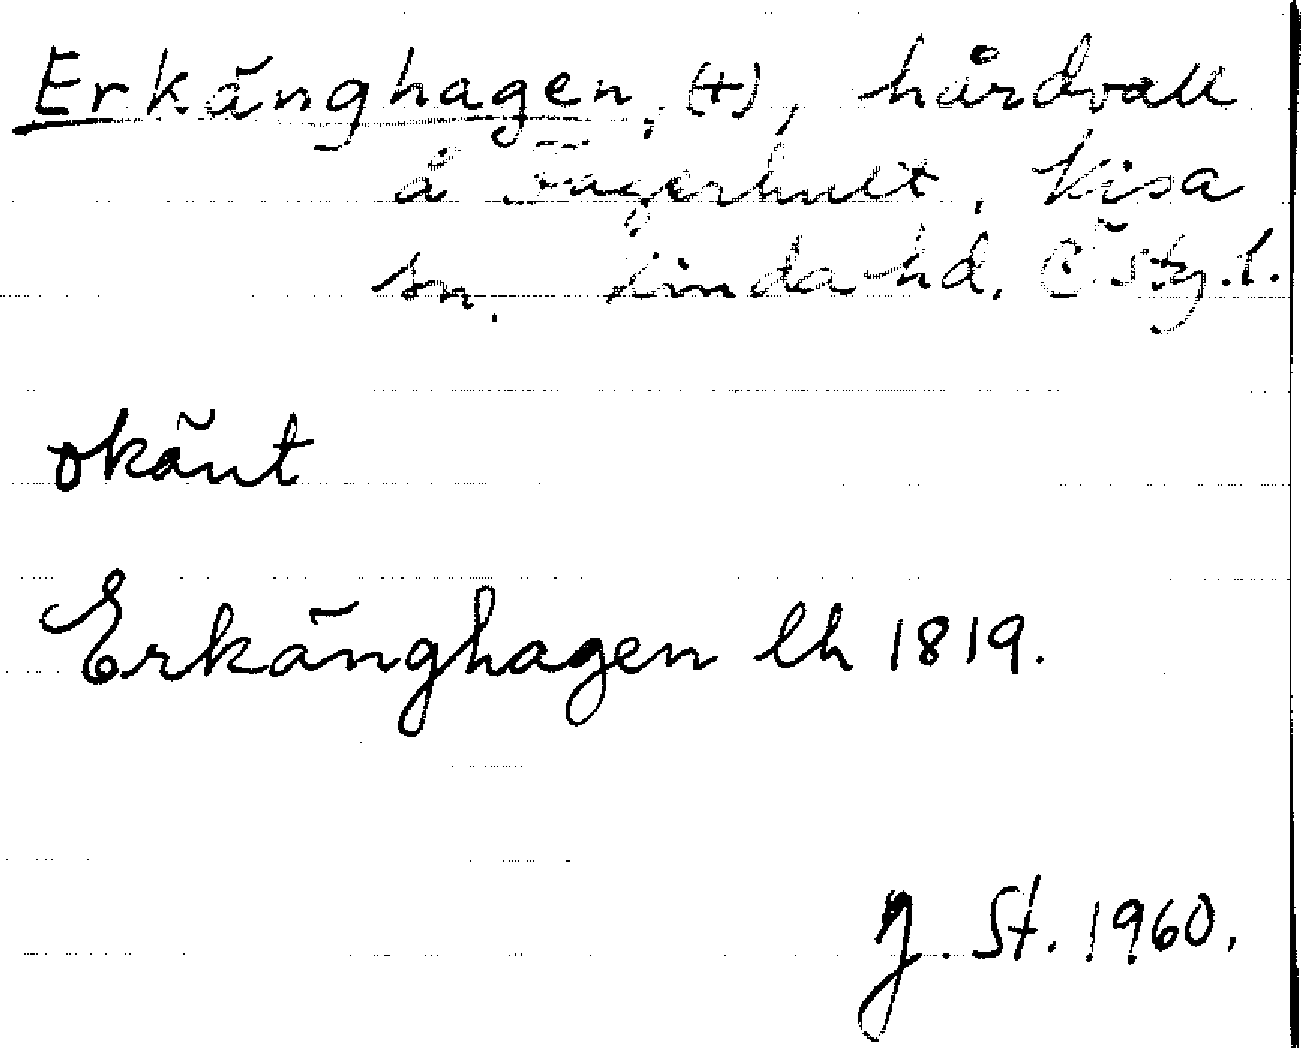 Erkänghagen, (+), hårdvall
å Fagerhult, Kisa
sn. Kinda hd. Östg.l.
okänt
Erkänghagen lh 1819.
g. St. 1960.